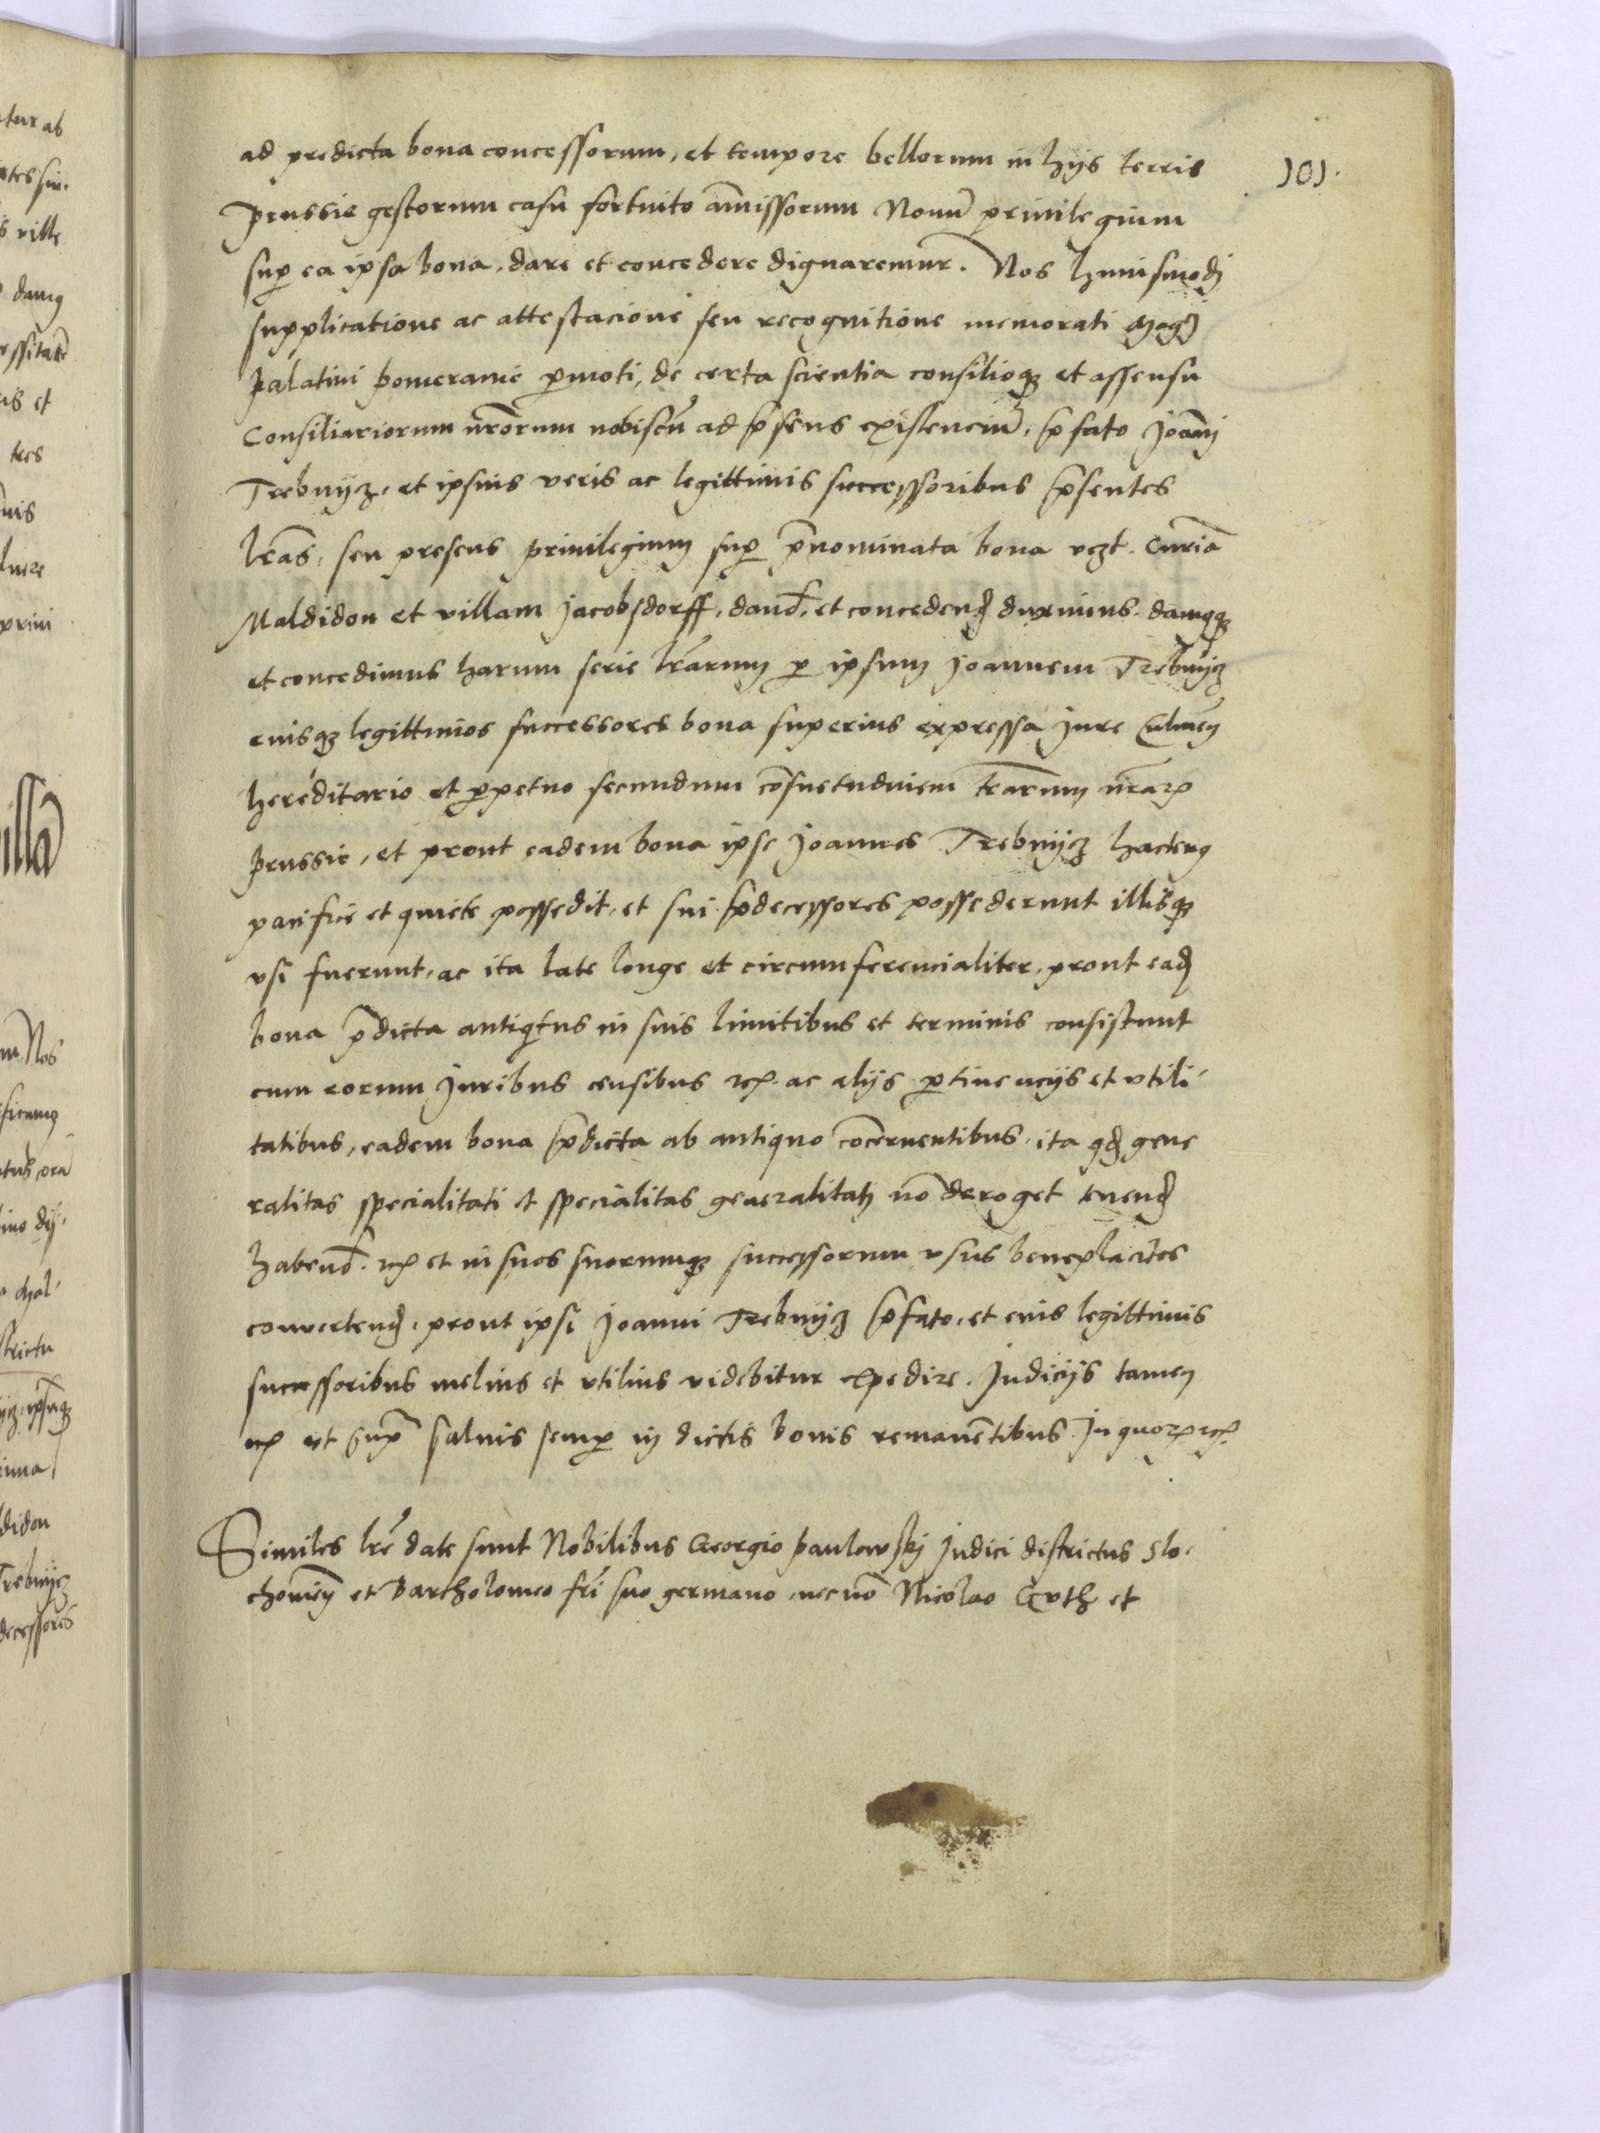 101.
ad predicta bona concessorum, et tempore bellorum in hijs terris
Prussie gestorum casu fortuito am̄issorum Nouū priuilegium
sup̱ ea ipsa bona, dare et concedere dignaremur. Nos huiusmodj
supplicatione ac attestacione seu recognitione memorati
palatini pomeranie ꝑmoti, de certa scientia consilioqꝫ et assensu
Consiliariorum nr̄orum nobiscū ad p̄sens existenciū, p̄fato Joāni
Trebnijcz, et ipsius veris ac legittimis successoribus p̄sentes
lr̄as, seu presens priuilegium suꝑ p̄nominata bona vꝫt. Curiā
Maldidon et villam Jacobsdorff, dand̄, et concedend̄ duximus. damꝰqꝫ
et concedimus harum serie lr̄arum ꝑ ipsum Joannem Trebnijcz
eiusqꝫ legittimos successores bona superius expressa Jure Culmen̄
hereditario et ꝑpetuo secundum cōsuetudinem tr̄arum nr̄aꝝ
Prussie, et prout eadem bona ipse Joannes Trebnijcz hactenꝰ
pacifice et quiete possedit, et sui p̄decessores possederunt illisqꝫ
vsi fuerunt, ac ita late longe et circumferencialiter, prout ead̄
bona p̄dicta antiqͥtus in suis limitibus et terminis consistunt
cum eorum Juribus censibus ꝛcꝭ. ac alijs ꝑtinencijs et vtili-
tatibus, eadem bona p̄dicta ab antiquo cōcernentibus, ita qd̄ gene
ralitas specialitati et specialitas generalitatj nō deroget tenend̄
habend̄. ꝛcꝭ et in suos suorumqꝫ successorum vsus beneplacitos
conuertend̄, prout ipsi Joanni Trebnijcz p̄fato, et eius legittimis
successoribus melius et vtilius videbitur expedire. Judicijs tamen
ꝛcꝭ vt supͣ saluis semꝑ in dictis bonis remanētibus. In quoꝝ ꝛcꝭ.
Similes lr̄e date sunt Nobilibus Georgio paulowskj Judici districtus Slo-
chouien̄ et Bartholomeo fr̄i suo germano, necnō Nicolao Gvth et